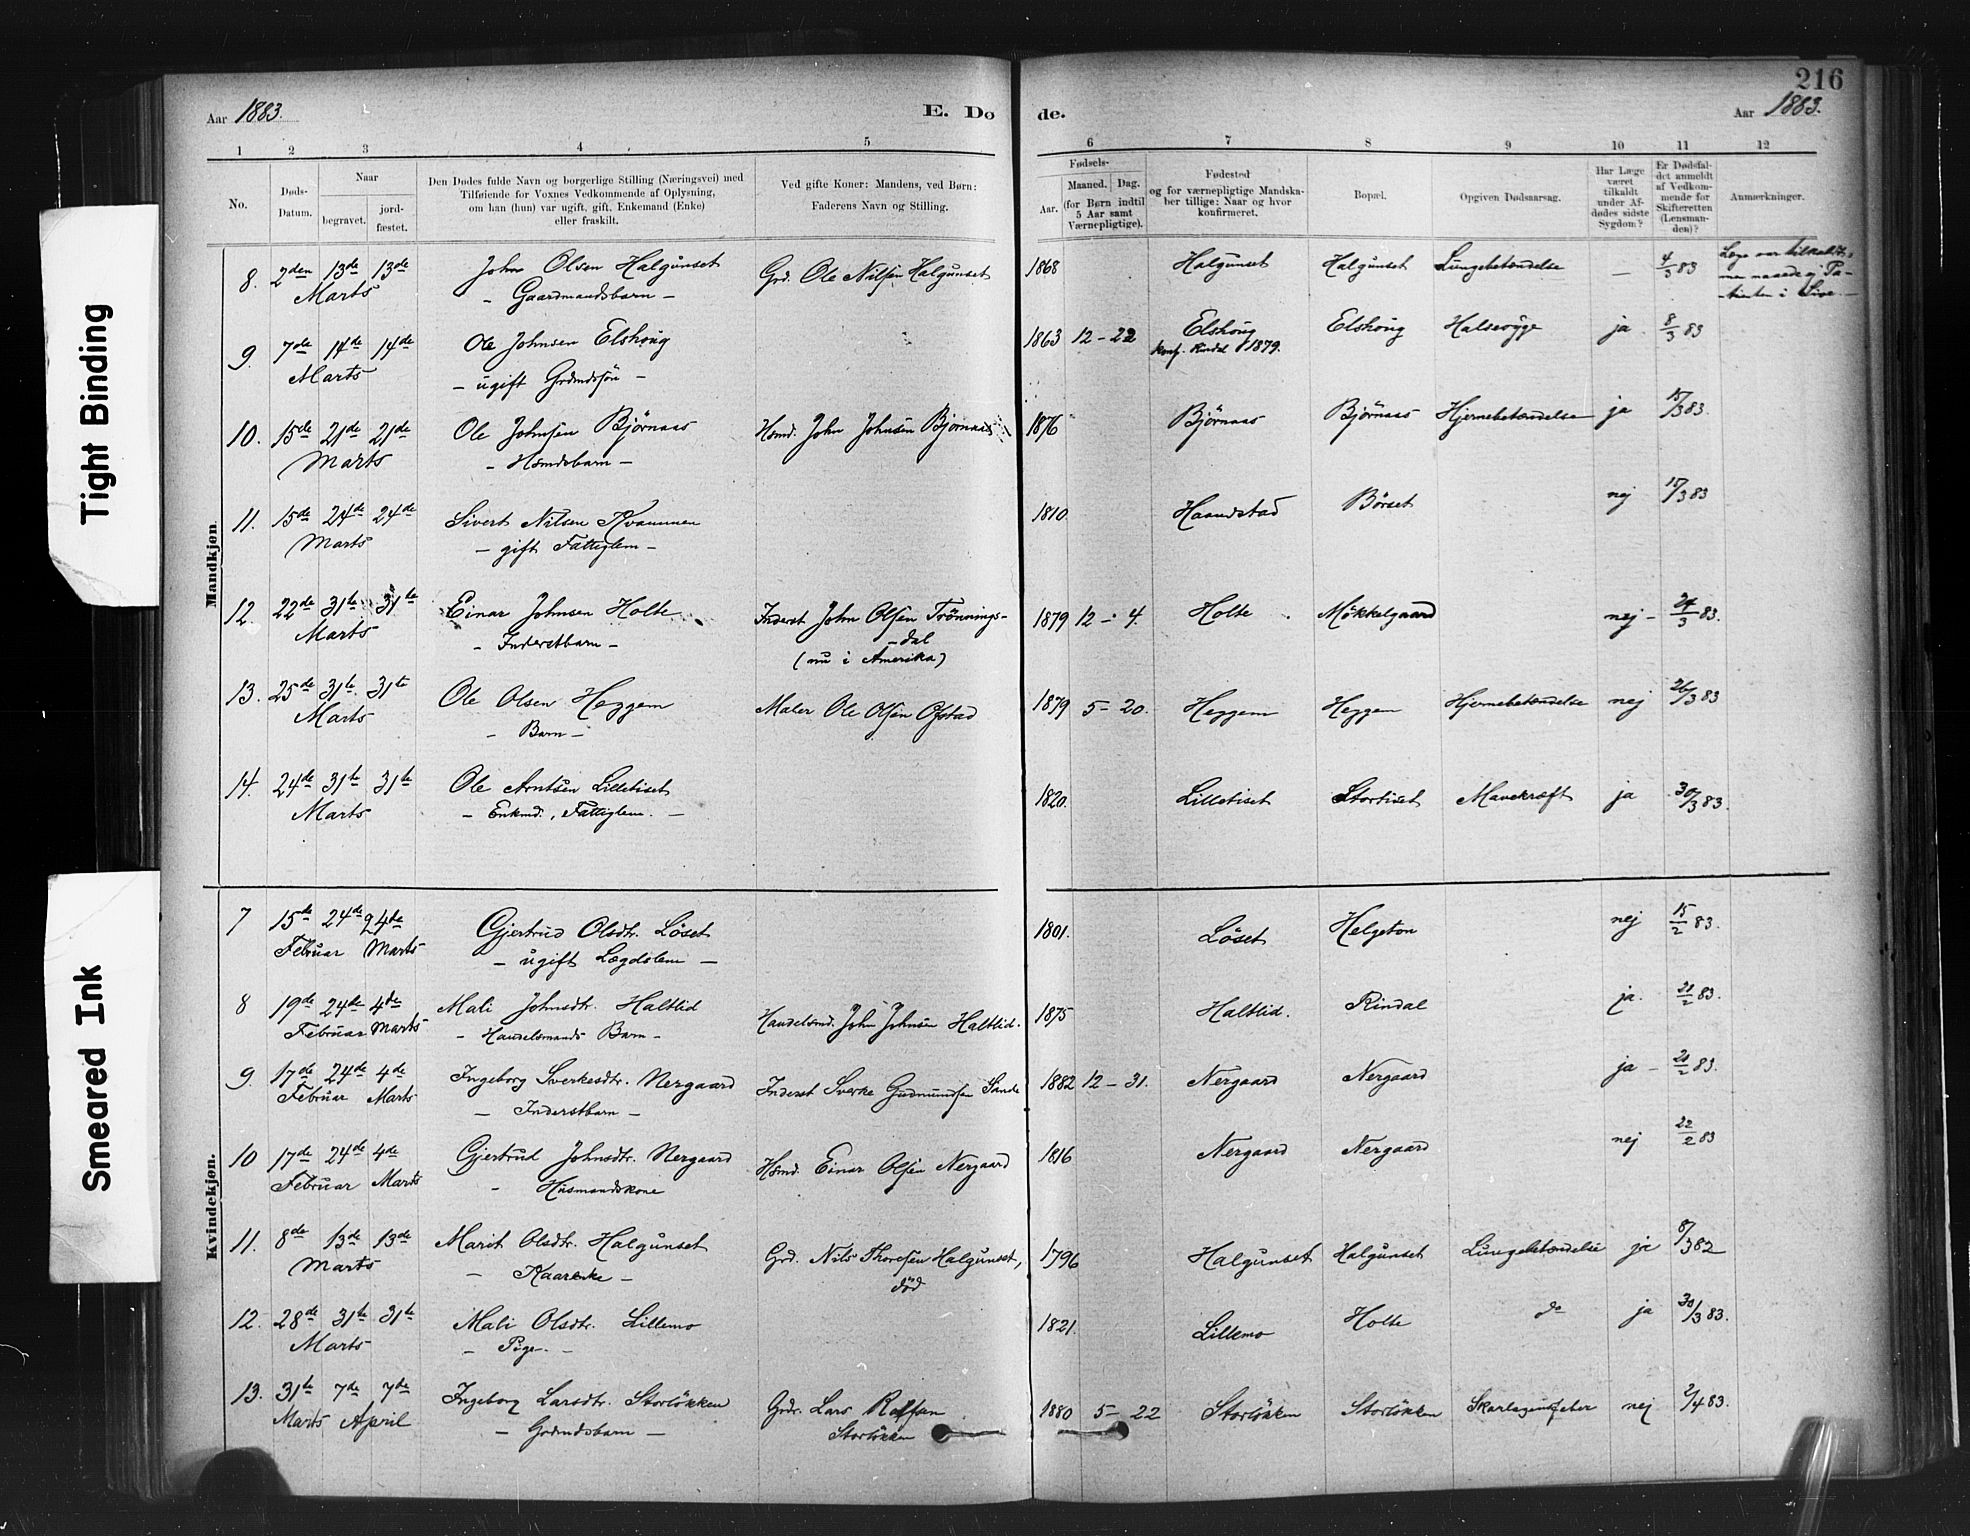 216
Aar 1883. E. Dø de. Aar 1883.
1 2 3 4 5 6 7 8 9 10 11 12
No.
Døds-
Datum.
Naar
begravet.
jord-
fæstet.
Den Dødes fulde Navn og borgerlige Stilling (Næringsvei) med
Tilføiende for Voxnes Vedkommende af Oplysning,
om han (hun) var ugift, gift, Enkemand (Enke)
eller fraskilt.
Ved gifte Koner: Mandens, ved Børn:
Faderens Navn og Stilling.
Fødsels-
Aar.
Maaned. Dag.
(for Børn indtil
5 Aar samt
Værnepligtige).
Fødested
og for værnepligtige Mandska-
ber tillige: Naar og hvor
konfirmeret.
Bopæl.
Opgiven Dødsaarsag.
Har Læge
været
tilkaldt
under Af-
dødes sidste
Sygdom?
Er Dødsfal-
det anmeldt
af Vedkom-
mende for
Skifteretten
(Lensman-
den)?
Anmærkninger.
Mandkjøn.
8. 2den 13de 13de John Olsen Halgunset Grd. Ole Nilsen Halgunset 1868 Halgunset Halgunset Lungebetændelse — 4/3 83 Læge var tilkaldt,
Marts - Gaardmandsbarn - men naaede ej Pa-
tienten i Live. -
9. 7de 14de 14de Ole Johnsen Elshøug 1863 12 - 22 Elshøug Elshøug Halssyge ja 8/3 83
Marts - ugift Grdmdssøn - konf. Rindal 1879.
10. 15de 21de 21de Ole Johnsen Bjørnaas Hsmd. John Johnsen Bjørnaas 1876 Bjørnaas Bjørnaas Hjernebetændelse ja 15/3 83.
Marts - Hsmdsbarn -
11. 15de 24de 24de Sivert Nilsen Kvammen 1810 Haandstad Børset nej 15/3 83
Marts - gift Fattiglem -
12. 22de 31te 31te Einar Johnsen Holte Inderst John Olsen Trønnings- 1879 12 - 4. Holte Møkkelgaard nej - 24/3 83.
Marts - Inderstbarn - -dal
(nu i Amerika)
13. 25de 31te 31te Ole Olsen Heggem Maler Ole Olsen Ofstad 1879 5 - 20. Heggem Heggem Hjernebetændelse nej 26/3 83
Marts - Barn -
14. 24de 31te 31te Ole Arntsen Lilletiset 1820. Lilletiset Stortiset Mavekræft ja 30/3 83.
Marts - Enkmd., Fattiglem. -
Kvindekjøn.
7 15de 24de 24de Gjertrud Olsdtr. Løset 1801. Løset Helgeton nej 15/2 83.
Februar Marts - ugift Lægdslem -
8 19de 24de 4de Mali Johnsdtr. Haltlid Handelsmd. John Johnsen Haltlid. 1875 Haltlid. Rindal ja. 21/2 83.
Februar Marts - Handelsmands Barn -
9. 17de 24de 4de Ingeborg Sverkesdtr. Nergaard Inderst Sverke Gudmundsen Sande 1882 12 - 31. Nergaard Nergaard ja - 21/2 83.
Februar Marts - Inderstbarn -
10 17de 24de 4de Gjertrud Johnsdtr. Nergaard Hsmd. Einar Olsen Nergaard 1816 Nergaard Nergaard nej 22/2 83
Februar Marts - Husmandskone
11. 8de 13de 13de Marit Olsdtr. Halgunset Grd. Nils Thoresen Halgunset, 1796 Halgunset Halgunset Lungebetændelse ja 8/3 82
Marts - Kaarenke - død
12. 28de 31te 31te Mali Olsdtr. Lillemo 1821. Lillemo Holte do ja 30/3 83.
Marts - Pige. -
13. 31te 7de 7de Ingeborg Larsdtr. Storløkken Grdr. Lars Rolfsen 1880 5 - 22 Storløkken Storløkken Skarlagensfeber nej 2/4 83.
Marts April - Grdmdsbarn - Storløkken
Tight Binding
Smeared Ink